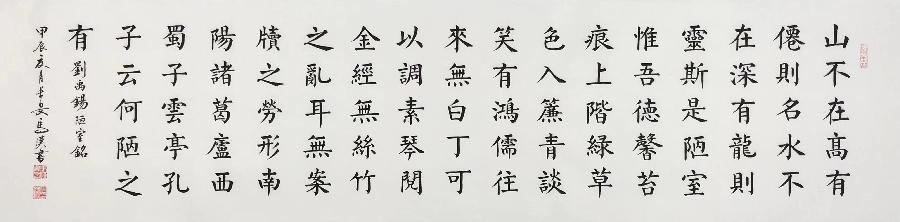 山不在髙有
僊則名水不
在深有龍則
靈斯是陋室
惟吾徳馨苔
痕上階緑草
色入簾青談
笑有鴻儒往
來無白丁可
以調素琴閱
金經無絲竹
之亂耳無案
牘之勞形南
陽諸葛廬西
蜀子雲亭孔
子云何陋之
有
劉禹錫陋室銘
甲辰夏月